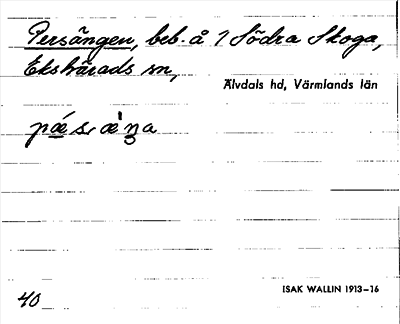 Persängen, beb. å 1 Södra Skoga,
Ekshärads sn,
Älvdals hd, Värmlands län
ISAK WALLIN 1913–16
40